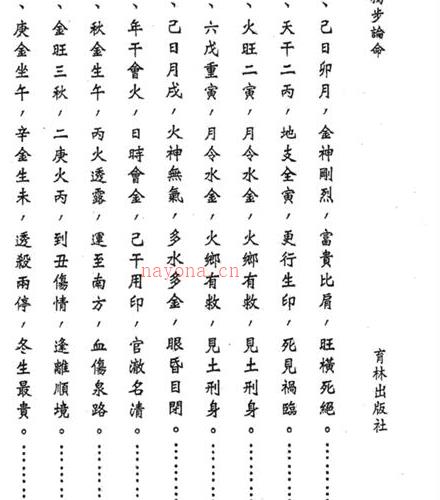 步論命
育林出版社
、己日卯月,金神剛烈,富貴比肩,旺橫死絕。………
、天干二丙,地支全寅,更行生印,死見禍臨。………
、火旺二寅,月令水金,火鄉有救,見土刑身。………
、六戊重寅,月令水金,火鄉有救,見土刑身。………
、己日月戌,火神無氣,多水多金,眼昏目閉。………
、年干會火,日時會金,己干用印,官澈名清。………
、秋金生午,丙火透露,運至南方,血傷泉路。………
、金旺三秋,二庚火丙,到丑傷情,逢離順境。………
、庚金坐午,辛金生未,透殺兩停,冬生最貴。………
nayona.cn